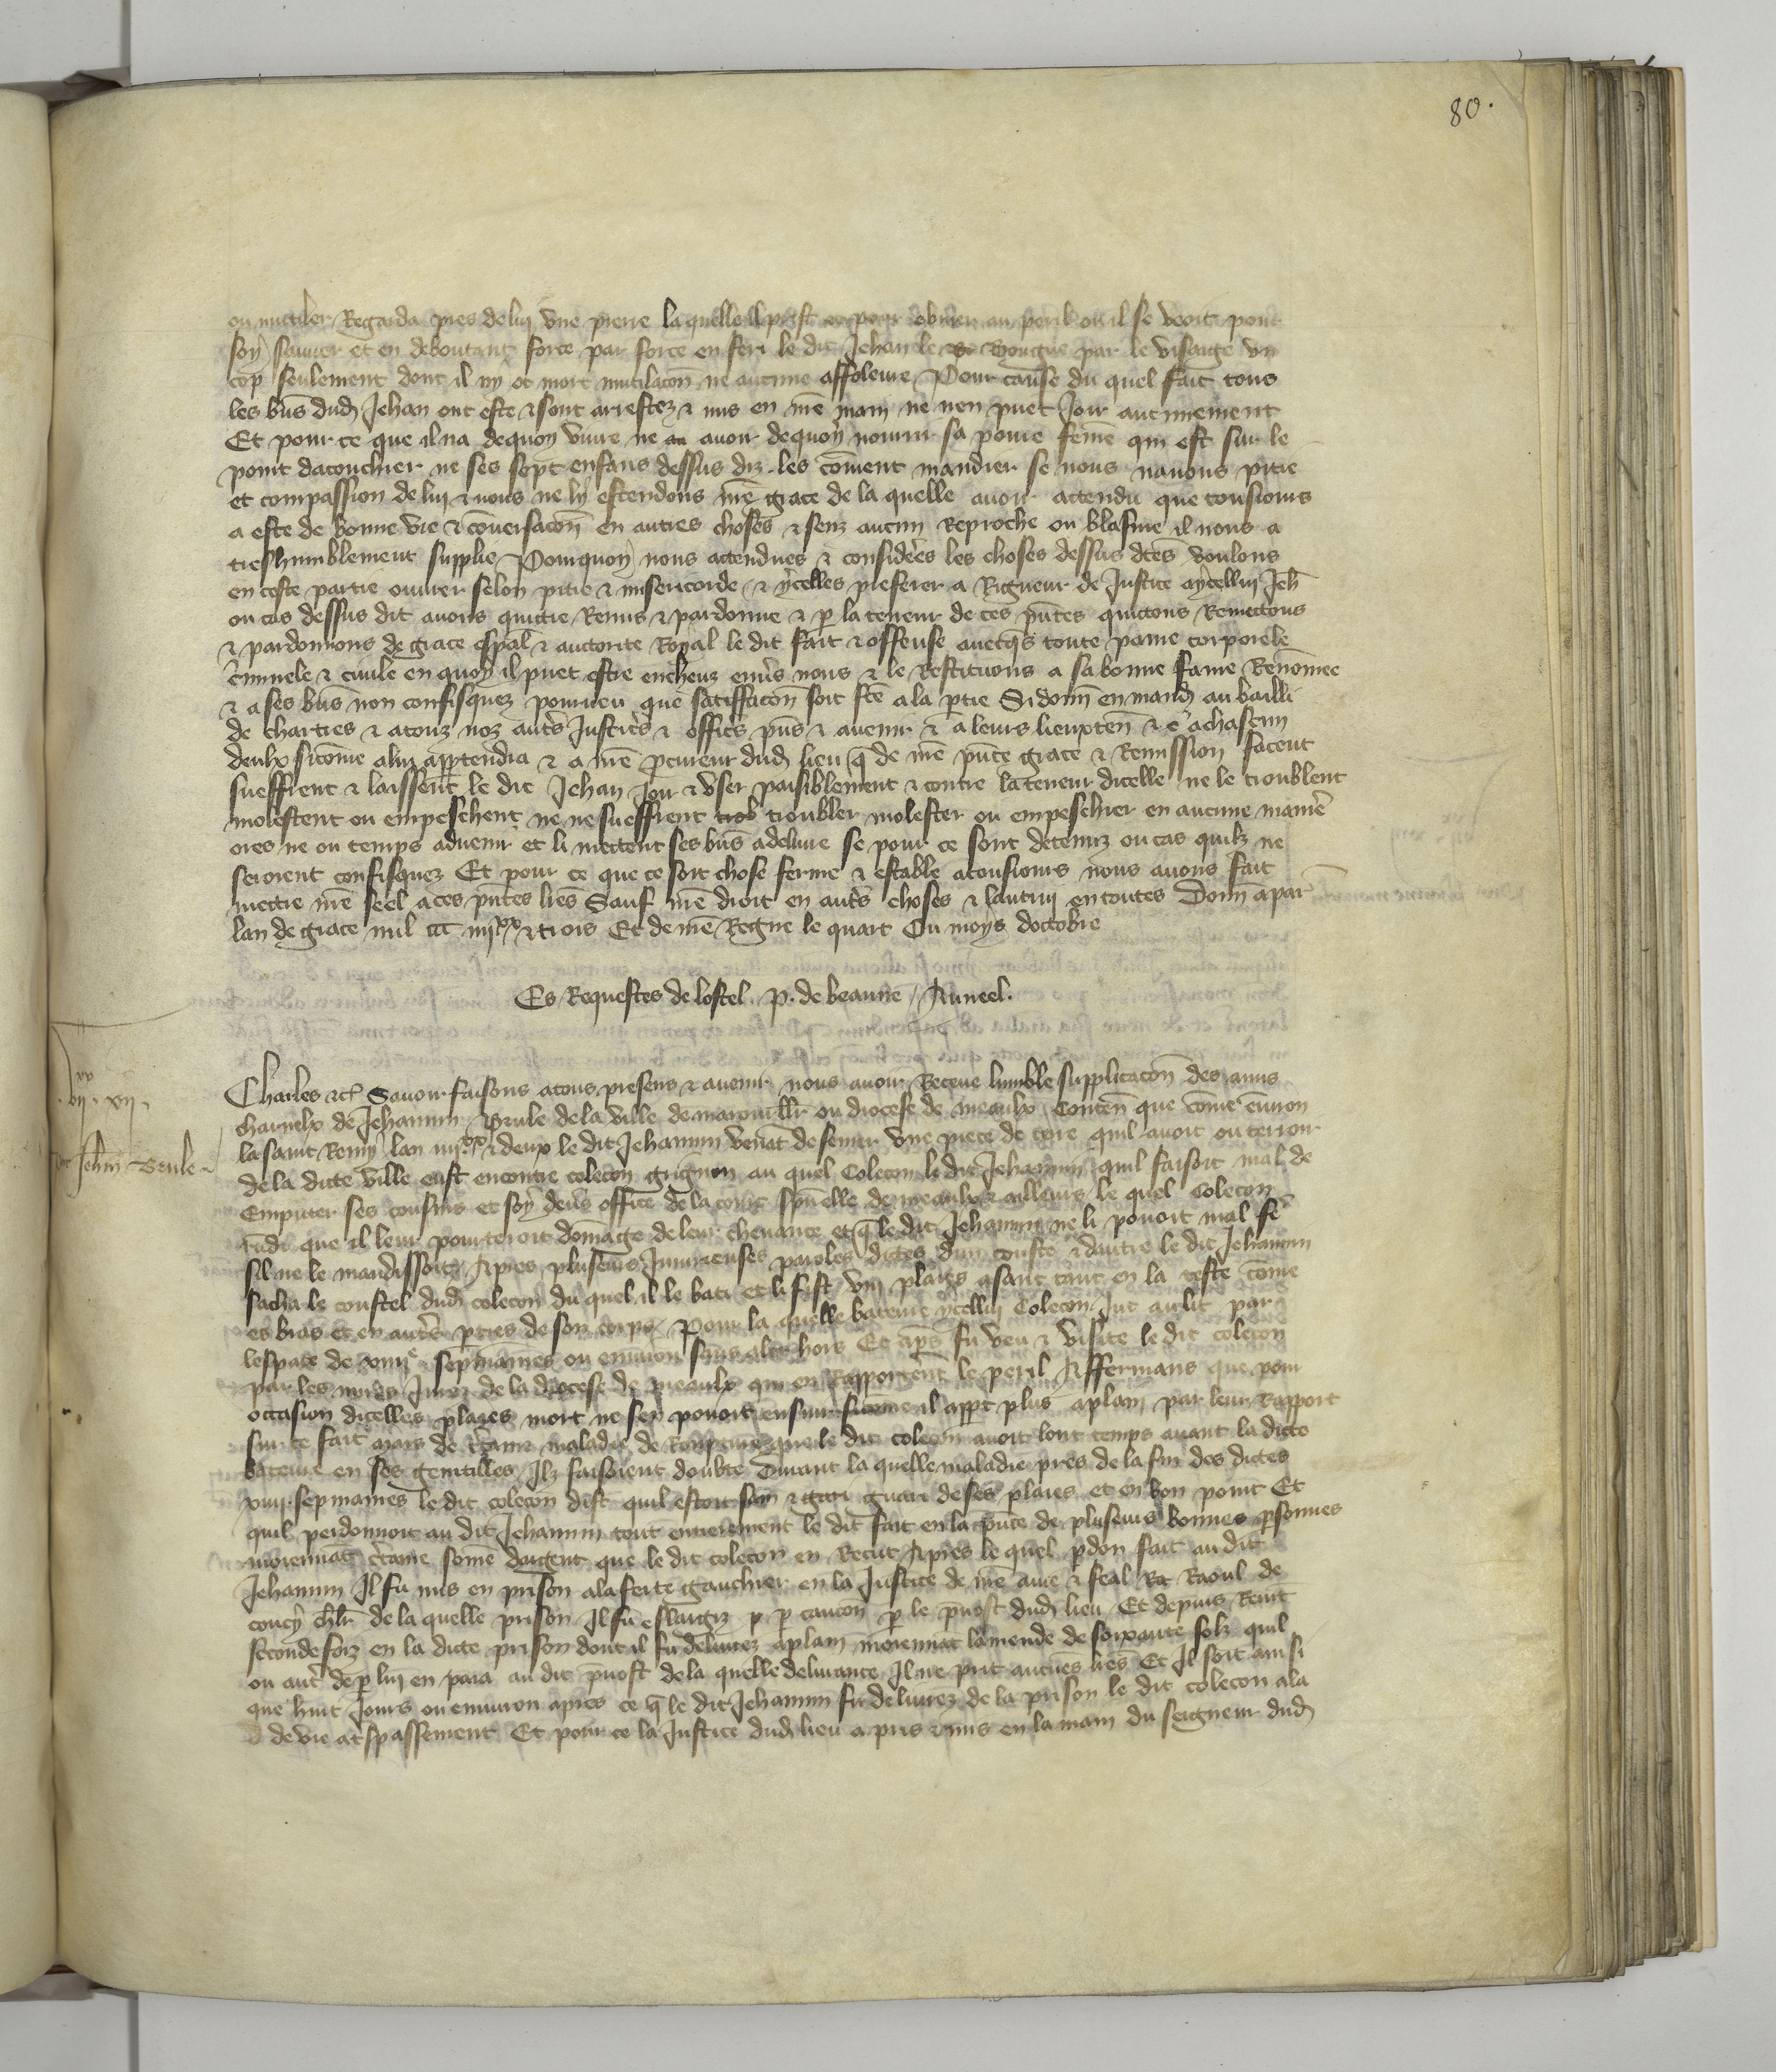 80.
ou mutiler Regarda pres de luy une pierre la quelle il prist et pour obvier au peril ou il se veoit pour
soy sauver et en deboutant force par force en feri le dit Jehan le par le visaige un
cop seulement dont il ny ot mort mutilacōn ne aucune affoleure Pour cause du quel fait tous
les bn̄s dud Jehan ont este & sont arrestez & mis en nr̄e main ne nen puet Joir aucunement
Et pour ce que il na dequoy vivre ne avoir dequoy nourrir sa povre feme qui est sur le
point dacouchier ne ses sept enfans dessus diz les cōvient mandier se nous navons pitie
et compassion de lui & nous ne ly estendons nr̄e grace de la quelle avoir attendu que tousiours
a este de bonne vie & cōversacōn en autres choses & senz aucun Reproche ou blasme il nous a
treshumblement supplie Pourquoy nous attendues & considerees les choses dessus dc̄es voulons
en ceste partie ouvrer selon pitie & misericorde & ycelles preferer a Rigueur de Justice aycellui Jeh̄
ou cas dessus dit avons quictie Remis & pardonne & p la teneur de ces pn̄tes quictons Remectons
& pardonnons de grace esp̄al & auctorite Royal le dit fait & offense avecqs toute paine corporele
c̄minele & civile en quoy il puet estre encheuz env̄s nous & le Restituons a sa bonne fame Renōmee
& a ses bn̄s non confisquez pourveu que satiffacōn soit fc̄e a la p̄tie Si donn̄ en mand au bailli
de chartres & a touz noz aut̄s Justic̄s & offic̄s pn̄s & avenir & a leurs lieuxten̄ & a chascun
deulx si cōme a lui app̄tendra & a nr̄e p̄cureur dud lieu q̄ de nr̄e pn̄te grace & Remission facent
sueffrent & laissent le dit Jehan Joir & user paisiblement & contre la teneur dicelle ne le troublent
molestent ou empeschent ne ne sueffrent trob troubler molester ou empeschier en aucune manie
ores ne ou temps advenir et li mectent ses bn̄s a delivre se pour ce sont detenuz ou cas quilz ne
seroient confisquez Et pour ce que ce soit chose ferme & estable a tousiours nous avons fait
mectre nr̄e seel a ces pn̄tes lr̄es Sauf nr̄e droit en aut̄s choses & lautrui en toutes Donn̄ a par
lan de grace mil ccc iiijxx & trois Et de nr̄e Regne le quart Ou moys doctobre
Es Requestes de lostel. p. de beaune / Auneel.
xx
vij. xij.
Jehn̄ Brule
Charles etc̄ Savoir faisons a tous presens & avenir nous avoir Receue lumble supplicacōn des amis
charnelx de Jehannin Brule de la ville de ou diocese de meaulx Conten̄ que cōme environ
la saint Remy lan iiijxx & deux le dit Jehannin venāt de semer une piece de terre quil avoit ou terrour
de la dicte ville eust encontre colecon grignon au quel Colecon le dit Jehannin quil faisoit mal de
Empiter ses cousins et soy dev̄s office de la court sp̄uelle de meaulx & ailleurs le quel Colecon
rn̄di que il leur pourteroit dōmage de leur chevance et q̄ le dit Jehannin ne li povoit mal fe
sil ne le maudissoit Apres pluseurs Iniurieuses paroles dictes dun couste & dautre le dit Jehannin
sacha le coustel dud colecon du quel il le bati et li fist viij plaies a sanc tant en la teste cōme
es bras et en aut̄s p̄ties de son corps Pour la quelle bateure ycellui Colecon Jut au lit par
lespace de xiiije sepmaines ou environ sans aler hors Et ap̄s fu veu & visite le dit colecon
par les mires Jurez de la diocese de meaulx qui en Rapporterent le peril Affermans que pour
occasion dicelles plaies mort ne sen povoit ensuir si cōme il app̄t plus a plain par leur Rapport
sur ce fait mais de c̄taine maladie de Rompture que le dit colecon avoit lonc temps avant la dicte
bateure en ses genitilles Ilz faisoient doubte Durant la quelle maladie pres de la fin des dictes
xiiij. sepmaines le dit colecon dist quil estoit sain & gari guari de ses plaies et en bon point Et
quil perdonnoit au dit Jehannin tout entierement le dit fait en la pn̄ce de pluseurs bonnes p̄sonnes
moiennāt c̄taine sōme dargent que le dit colecon en Recut Apres le quel p̄don fait au dit
Jehannin Il fu mis en prison a la ferte gauchier en la Justice de nr̄e ame & feal Ra Raoul de
coucy ch̄lr de la quelle prison Il fu eslargiz p p caucōn p le p̄vost dud lieu Et depuis Remt
seconde foiz en la dicte prison dont il fu delivrez a plain moiennāt lamende de soixante solz quil
ou aut̄ de p lui en paia au dit p̄vost de la quelle delivrance Il ne prit aucunes lr̄es Et Il soit ainsi
que huit Jours ou environ apres ce q̄ le dit Jehannin fu delivrez de la prison le dit colecon ala
de vie a t̄spassement Et pour ce la Justice dud lieu a pris & mis en la main du seigneur dud